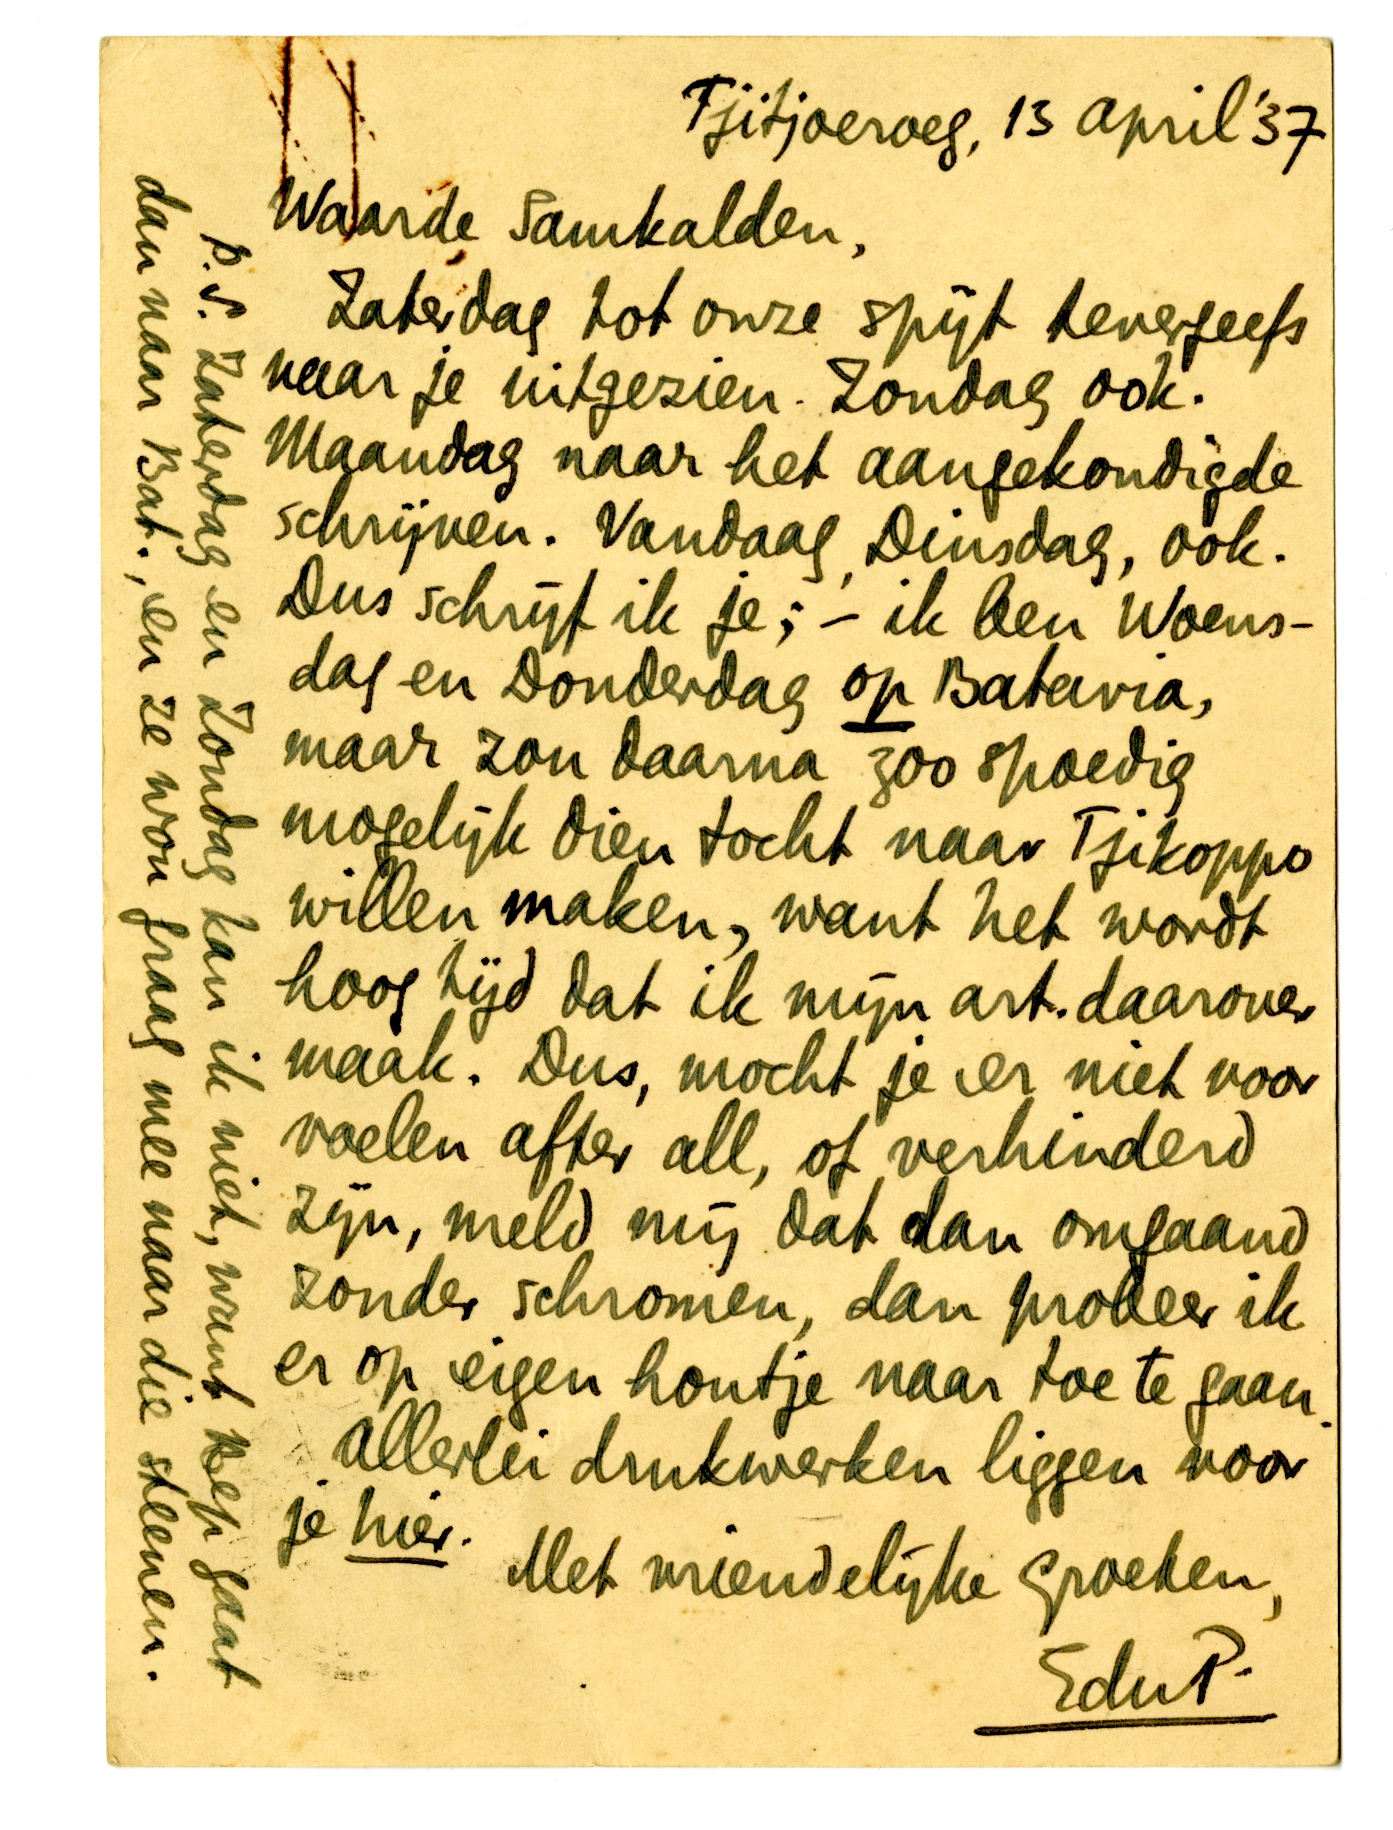 Tjitjoeroeg, 13 april '37
Waarde Samkalden,
Zaterdag tot onze spijt tevergeefs
naar je uitgezien. Zondag ook.
Maandag naar het aangekondigde
schrijven. Vandaag, Dinsdag, ook.
Dus schrijf ik je; – ik ben Woens-
dag en Donderdag op Batavia,
maar zou daarna zoo spoedig
mogelijk dien tocht naar Tjikoppo
willen maken, want het wordt
hoog tijd dat ik mijn art. daarover
maak. Dus, mocht je er niet voor
voelen after all, of verhinderd
zijn, meld mij dat dan omgaand
zonder schromen, dan probeer ik
er op eigen houtje naar toe te gaan.
Allerlei drukwerken liggen voor
je hier.
Met vriendelijke groeten,
EduP.
P.S. Zaterdag en Zondag kan ik niet, want Bep gaat
dan naar Bat., en ze wou graag mee naar die steenen.